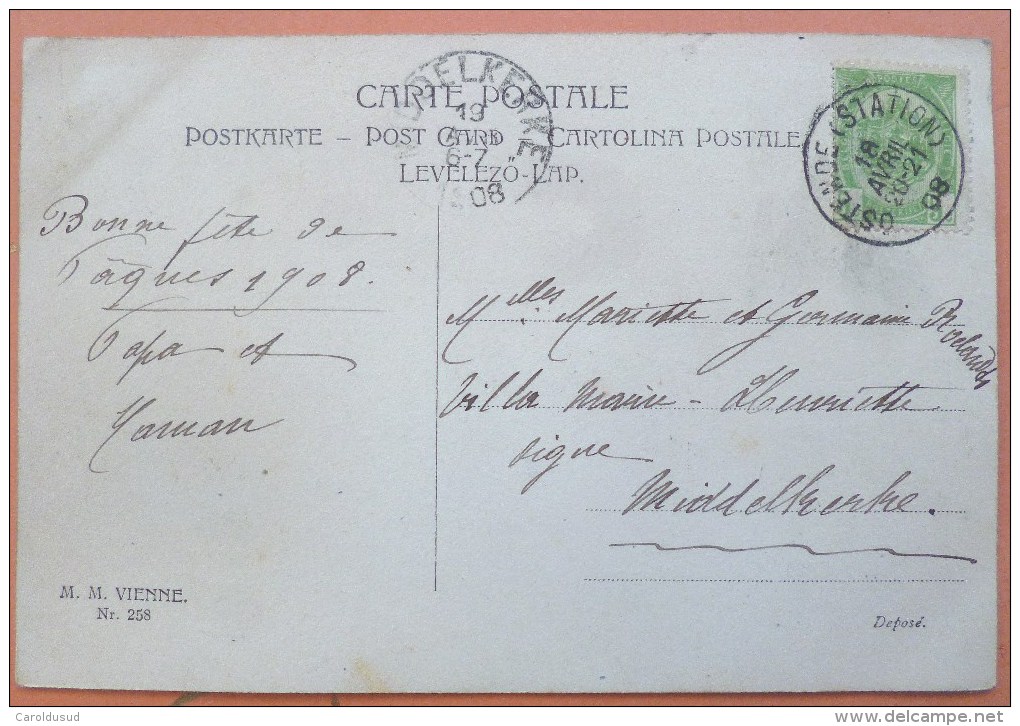 CARTE POSTALE
POSTKARTE – POST CARD – CARTOLINA POSTALE
LEVELEZŐ-LAP.
DDELKERKE
19
6-7
08
OSTENDE (STATION)
18
AVRIL
20-21
08
Bonne fête de
Pâques 1908.
Papa et
Maman
Mlles Mariette et Germaine Roelandts
Villa Marie-Henriette
digue
Middelkerke.
M. M. VIENNE.
Nr. 258
Deposé.
Caroldusud
www.delcampe.net